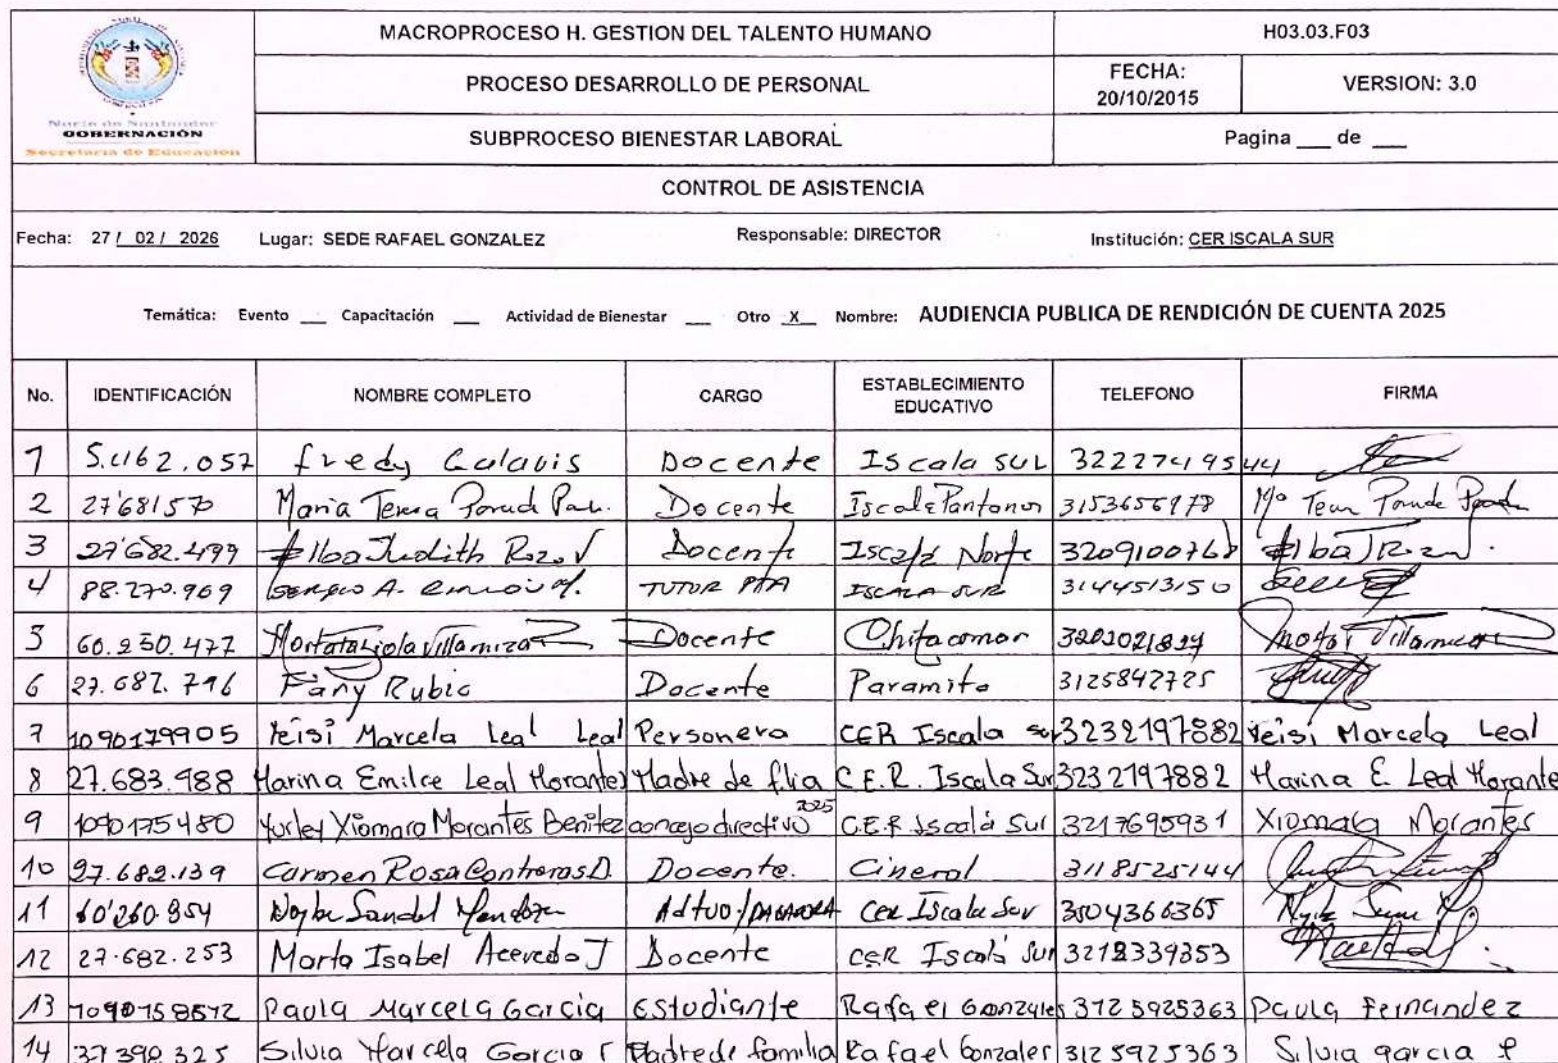 MACROPROCESO H. GESTION DEL TALENTO HUMANO H03.03.F03
PROCESO DESARROLLO DE PERSONAL FECHA: 20/10/2015 VERSION: 3.0
Norte de Santander
GOBERNACIÓN
Secretaria de Educacion
SUBPROCESO BIENESTAR LABORAL Pagina ___ de ___
CONTROL DE ASISTENCIA
Fecha: 27 / 02 / 2026 Lugar: SEDE RAFAEL GONZALEZ Responsable: DIRECTOR Institución: CER ISCALA SUR
Temática: Evento ___ Capacitación ___ Actividad de Bienestar ___ Otro _X_ Nombre: AUDIENCIA PUBLICA DE RENDICIÓN DE CUENTA 2025
No. IDENTIFICACIÓN NOMBRE COMPLETO CARGO ESTABLECIMIENTO EDUCATIVO TELEFONO FIRMA
1 5.462.057 fredy Galavis Docente Iscala sur 3222741954
2 27'681570 Maria Teresa Docente Iscala Pantanos 3153656978
3 27'682.499 Elba Judith Rozo V Docente Iscala Norte 3209100768 Elba J Rozo V.
4 88.270.969 Sergio A. TUTOR PTA ISCALA SUR 3144513150
5 60.250.477 Villamizar Docente Chitacomar Villamizar
6 27.682.796 Fany Rubio Docente Paramito 3125842725
7 1090179905 Yeisi Marcela Leal Leal Personera CER Iscala sur 3232197882 Yeisi Marcela Leal
8 27.683.988 Marina Emilce Leal Morantes Madre de flia C.E.R. Iscala Sur 3232197882 Marina E. Leal Morante
9 1090175480 Yurley Xiomara Morantes Benitez concejo directivo 2025 C.E.R Iscalà Sur 3217695931 Xiomara Morantes
10 27.682.139 Carmen Rosa Contreras D. Docente. Cineral 3118525144
11 60'260.954 Sandel Mendoza Adtvo/PAGADORA Cer Iscala Sur 3504366365
12 27.682.253 Marta Isabel Acevedo J Docente CER Iscalá Sur 3212339353
13 1090758572 Paula Marcela Garcia Estudiante Rafael Gonzales 3125925363 Paula Fernandez
14 37390325 Silvia Marcela Garcia Madre de familia Rafael Gonzales 3125925363 Silvia garcia